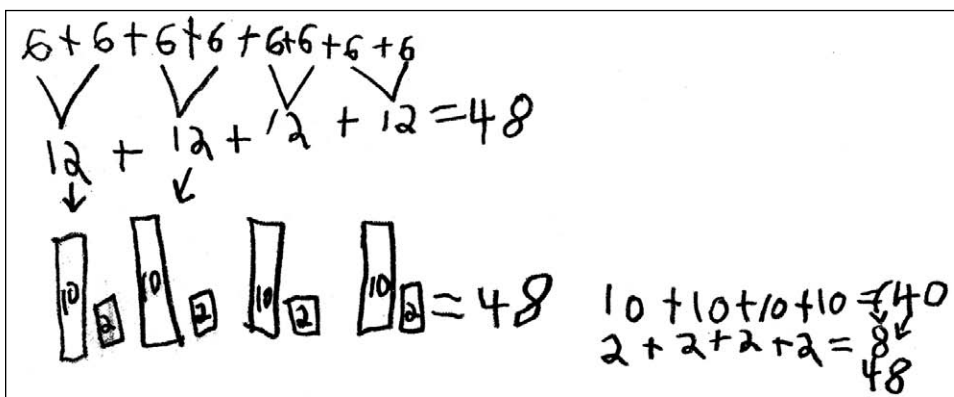 6+6+6+6+6+6+6+6
12 + 12 + 12 + 12 = 48
10 2 10 2 10 2 10 2 = 48
10 + 10 + 10 + 10 = 40
2 + 2 + 2 + 2 = 8
48